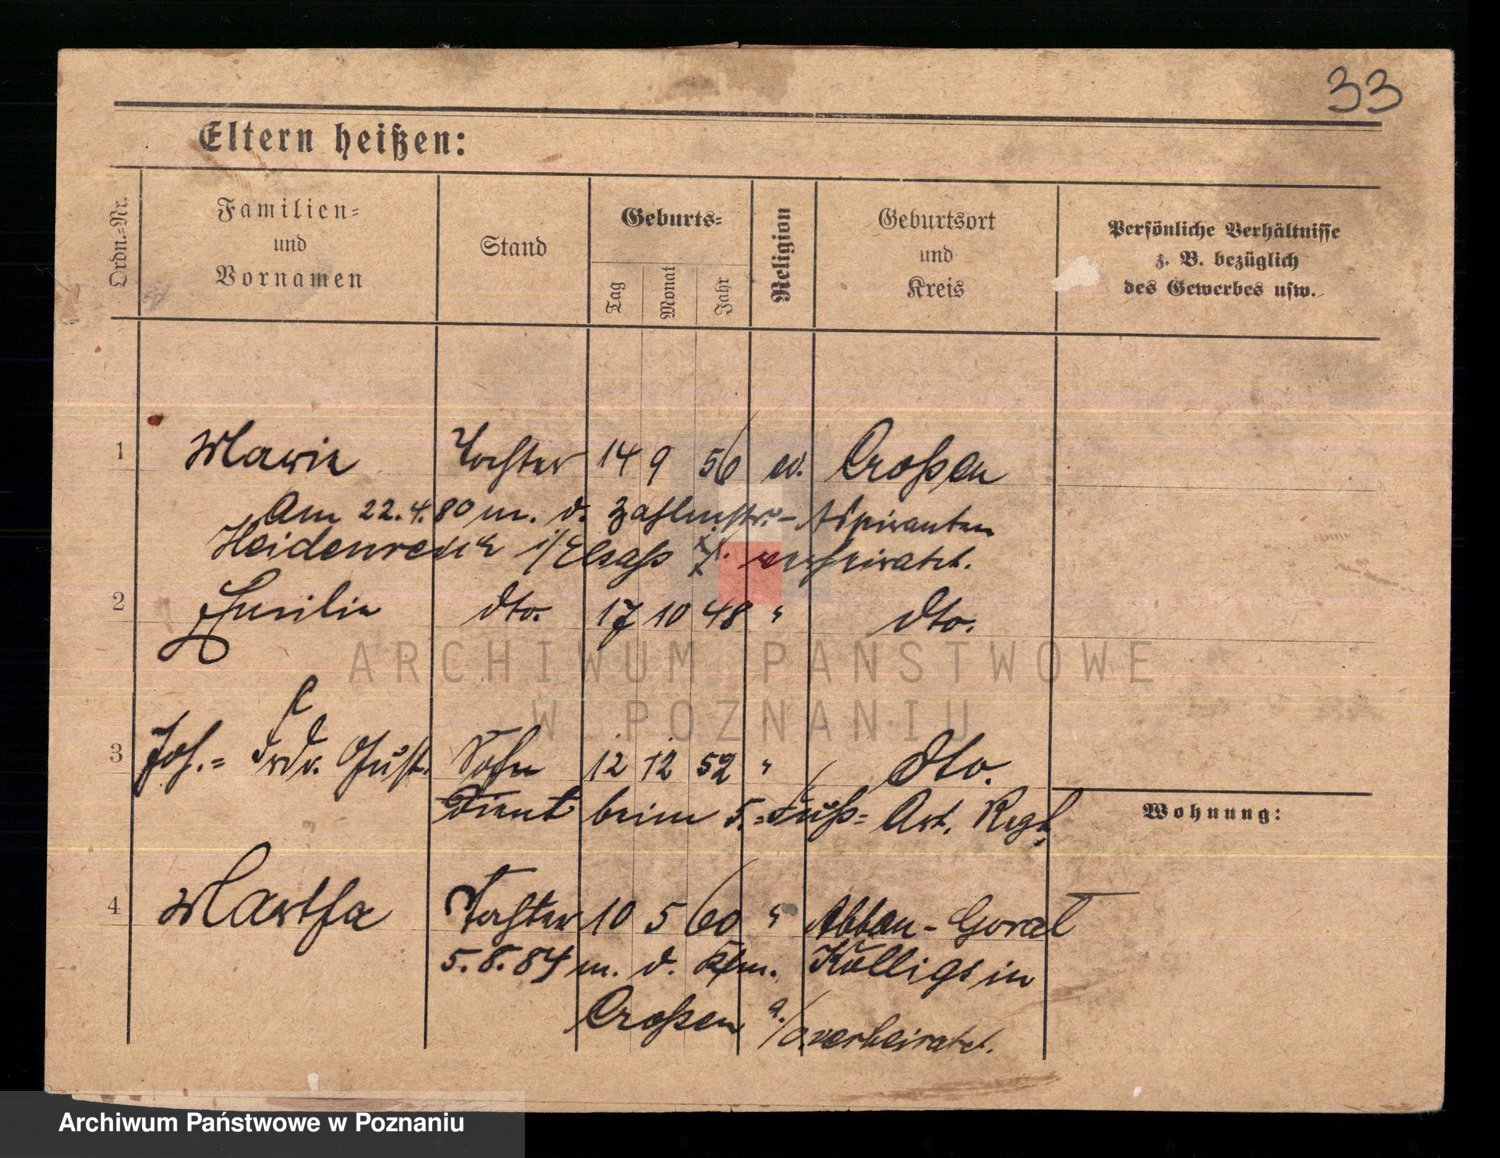 33
Eltern heißen:
Ordn.=Nr.
Familien=
und
Vornamen
Stand
Geburts=
Tag
Monat
Jahr
Religion
Geburtsort
und
Kreis
Persönliche Verhältnisse
z. B. bezüglich
des Gewerbes usw.
1 Marie Tochter 14 9 56 ev. Croßen
Am 22.4.80 m. d. Zahlmstr.- Aspiranten
Heidenreich i/Elsaß verheiratet.
2 dto. 17 10 48 " dto.
3 Joh.= Frdr. Gust. Sohn 12 12 52 " dto.
Dient beim 5.=Fuß= Art. Regt.
Wohnung:
4 Martha Tochter 10 5 60 " Abbau-Goral
5.8.84 m. d. Kfm. Kölligs in
Croßen a./O. verheiratet.
ARCHIWUM PAŃSTWOWE
W POZNANIU
Archiwum Państwowe w Poznaniu